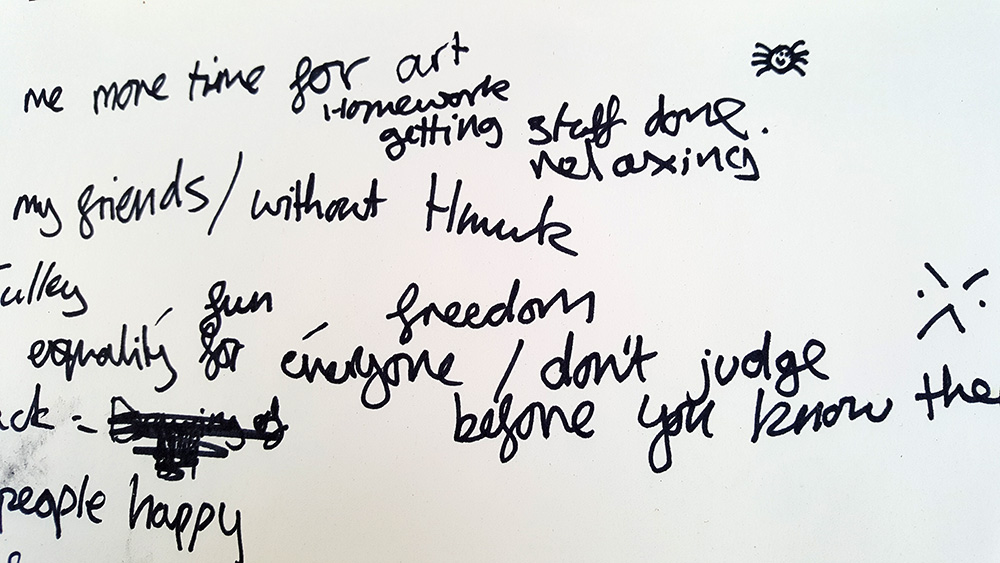 me more time for art
Homework
getting stuff done.
relaxing
my friends / without Hmwk
fun freedom
equality for everyone / don't judge
before you know the
people happy